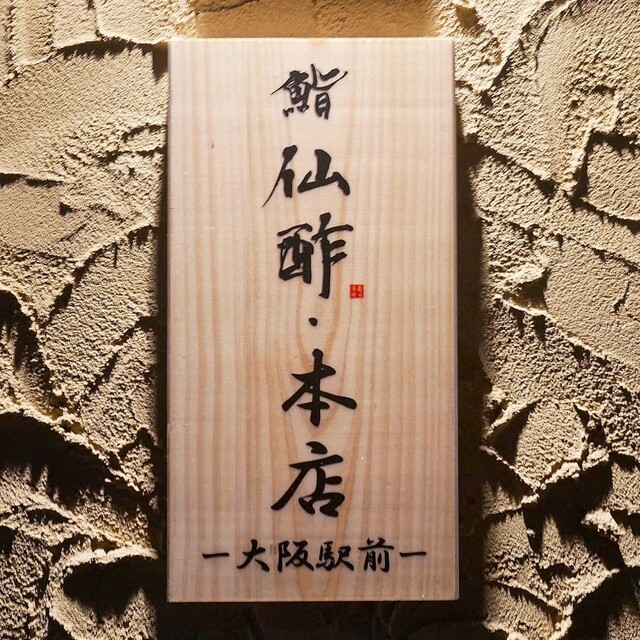 鮨
仙酢・本店
ー大阪駅前ー